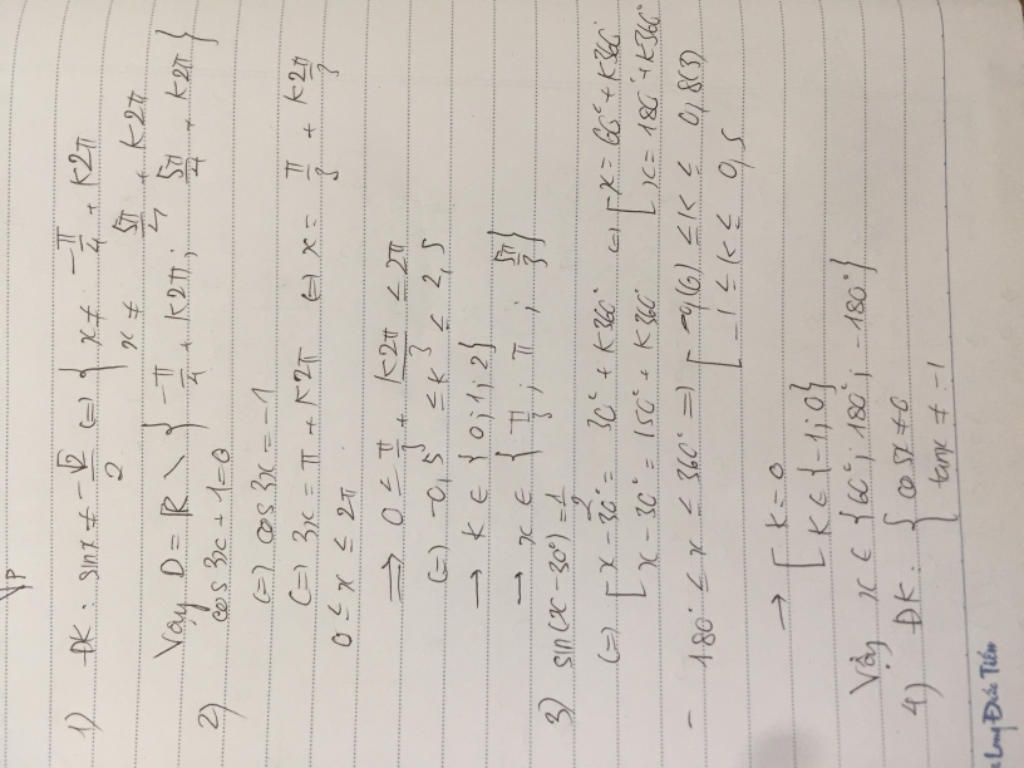 VP
1) ĐK: sinx ≠ -√2/2 (=) { x ≠ -π/4 + k2π
x ≠ 5π/4 + k2π
Vậy D = R \ { -π/4 + k2π; 5π/4 + k2π }
2) cos 3x + 1 = 0
(=) cos 3x = -1
(=) 3x = π + k2π (=) x = π/3 + k2π/3
0 ≤ x ≤ 2π
=> 0 ≤ π/3 + k2π/3 ≤ 2π
(=) -0,5 ≤ k ≤ 2,5
→ k ∈ {0; 1; 2}
→ x ∈ { π/3; π; 5π/3 }
3) sin(x - 30°) = 1/2
(=) [ x - 30° = 30° + k360° (=) [ x = 60° + k360°
x - 30° = 150° + k360° [ x = 180° + k360°
- 180° ≤ x ≤ 360° => [ -0,(6) ≤ k ≤ 0,8(3)
[ -1 ≤ k ≤ 0,5
→ [ k = 0
[ k ∈ {-1; 0}
Vậy x ∈ {60°; 180°; -180°}
4) ĐK: { cosx ≠ 0
{ tanx ≠ -1
Long Đức Tiến